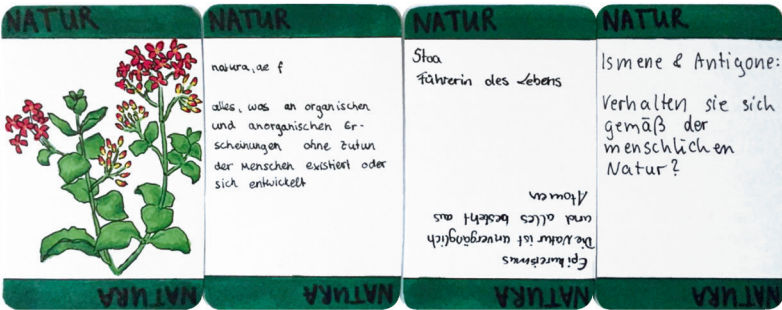 NATUR
NATURA
NATUR
natura, ae f
alles, was an organischen
und anorganischen Er-
scheinungen ohne Zutun
der Menschen existiert oder
sich entwickelt
NATURA
NATUR
Stoa
Führerin des Lebens
Epikureismus
Die Natur ist unvergänglich
und alles besteht aus
Atomen
NATURA
NATUR
Ismene & Antigone:
Verhalten sie sich
gemäß der
menschlichen
Natur?
NATURA